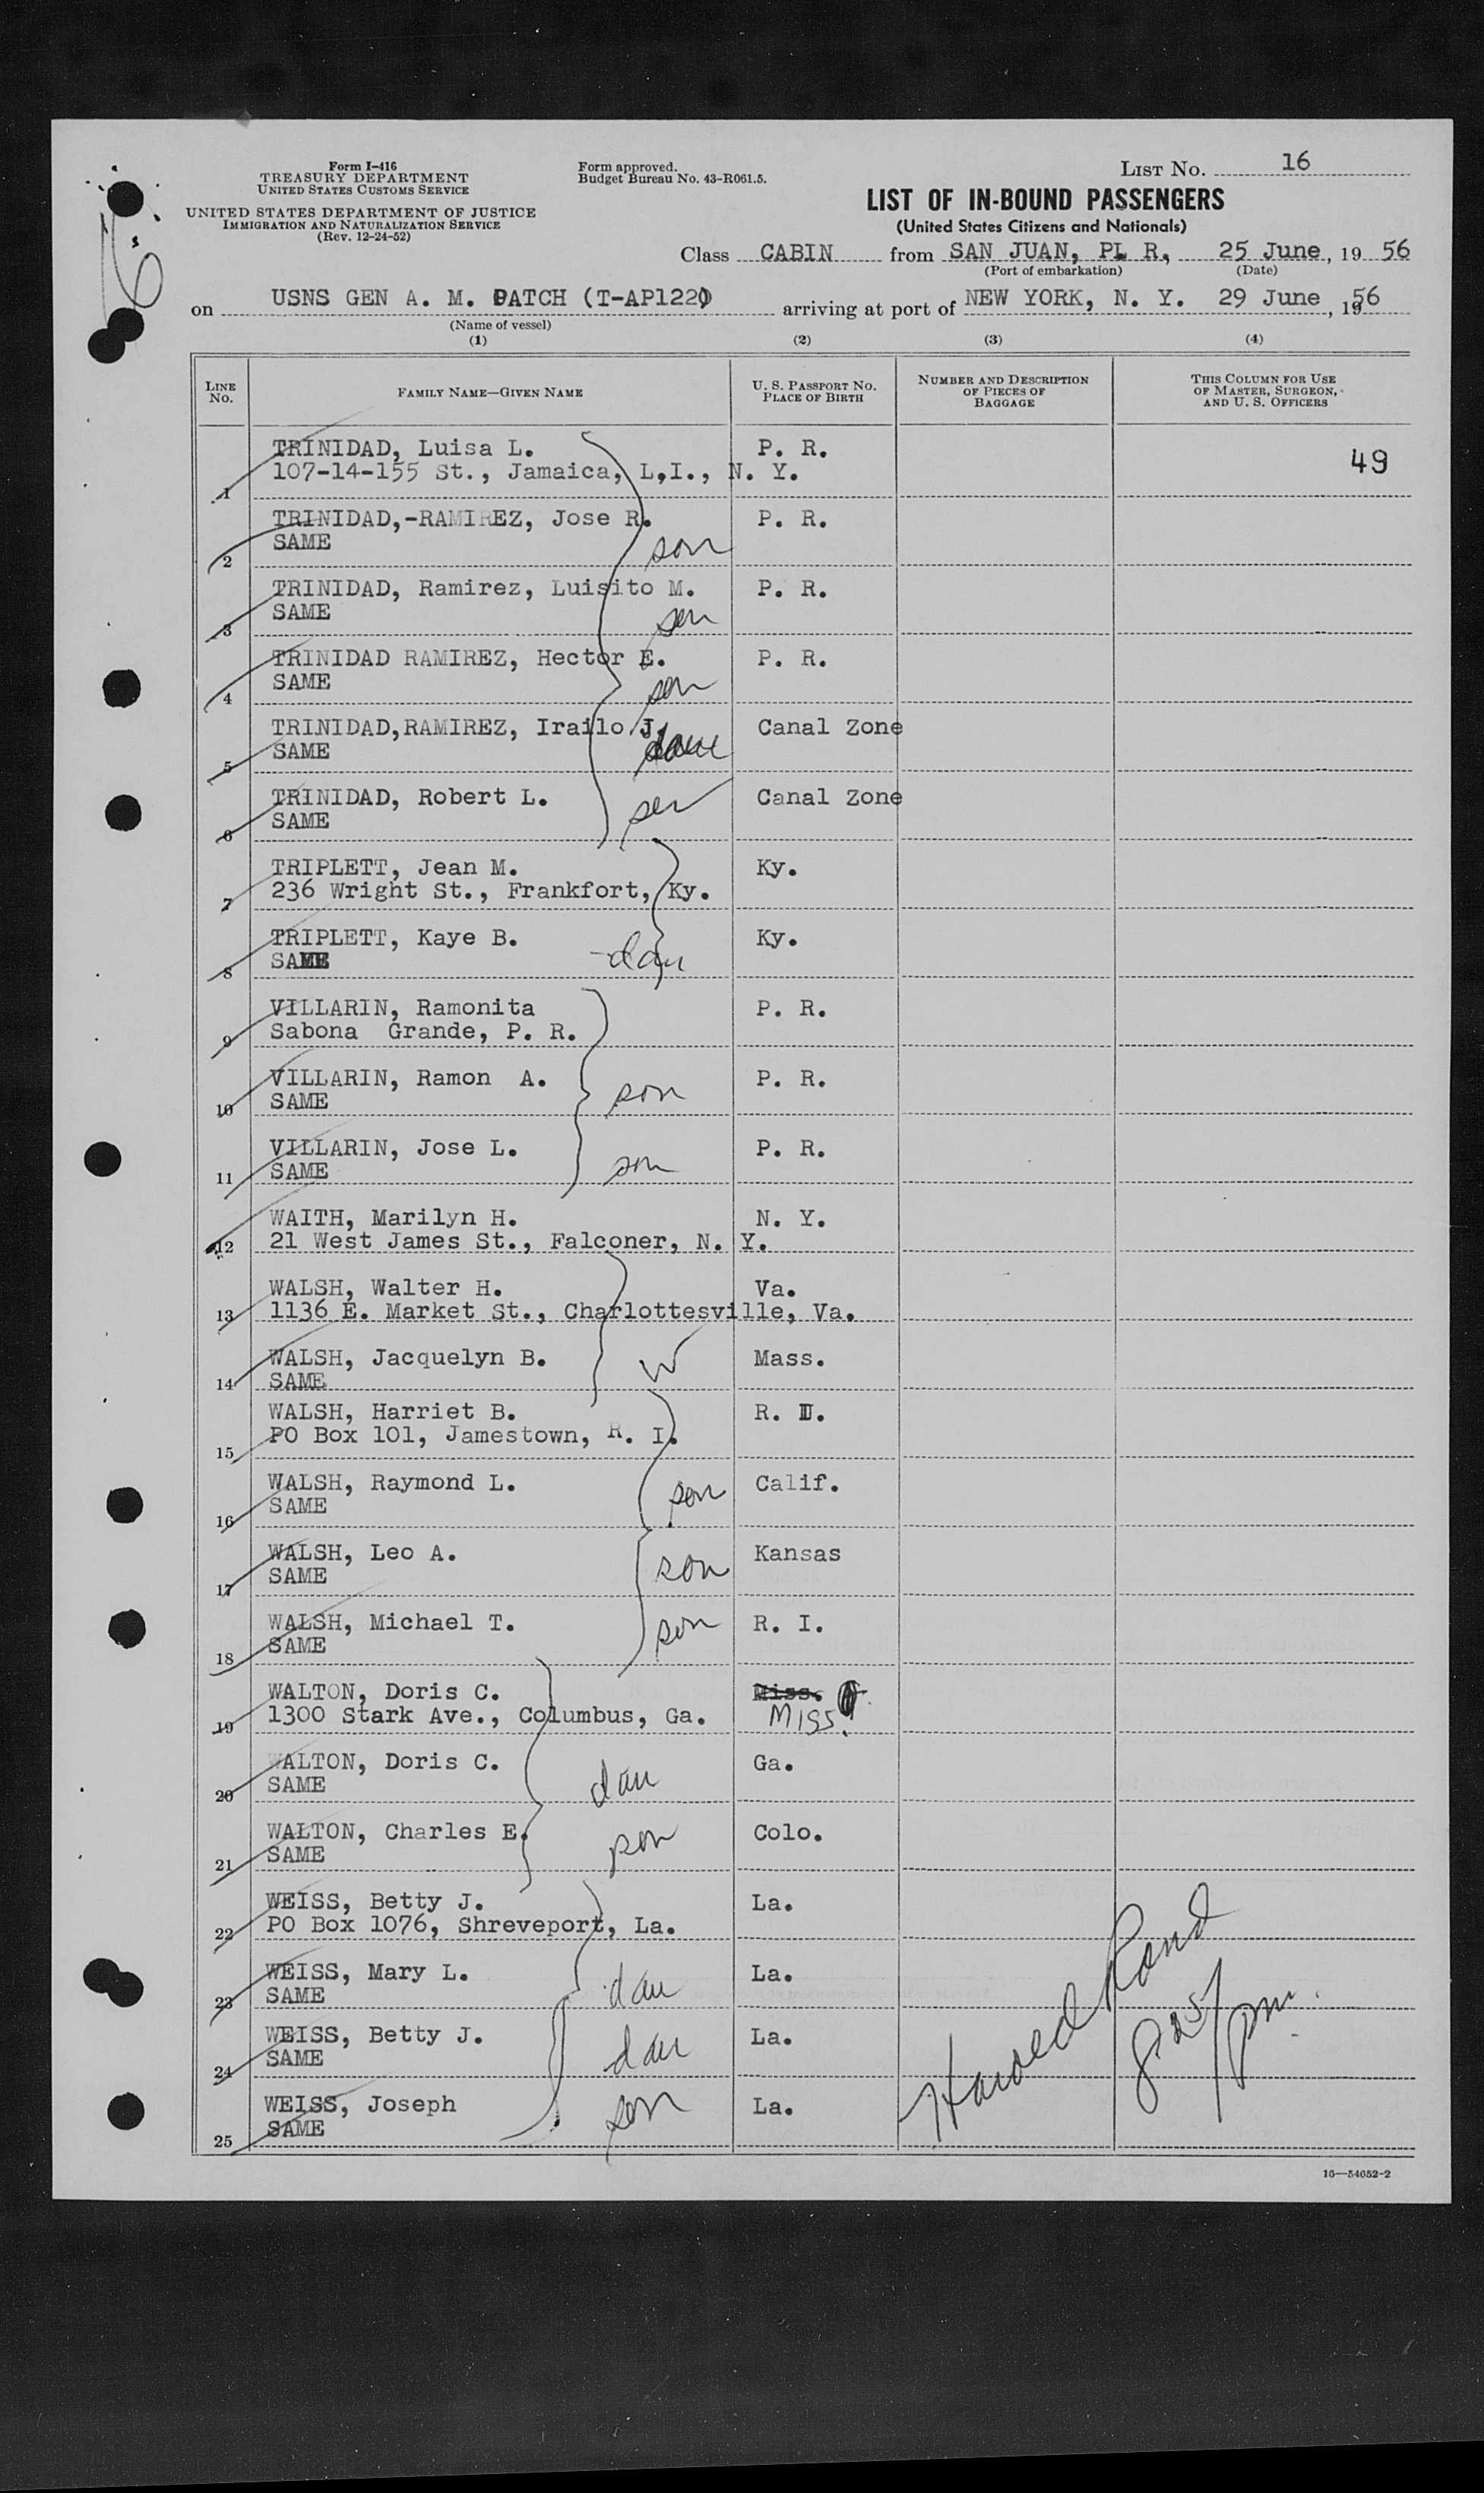 Form I-416
TREASURY DEPARTMENT
UNITED STATES CUSTOMS SERVICE
UNITED STATES DEPARTMENT OF JUSTICE
IMMIGRATION AND NATURALIZATION SERVICE
(Rev. 12-24-52)
Form approved.
Budget Bureau No. 43-R061.5.
LIST NO. 16
LIST OF IN-BOUND PASSENGERS
(United States Citizens and Nationals)
Class CABIN from SAN JUAN, P. R., 25 June, 19 56
(Port of embarkation) (Date)
on USNS GEN A. M. PATCH (T-AP122) arriving at port of NEW YORK, N. Y. 29 June, 1956
(Name of vessel)
(1) (2) (3) (4)
LINE NO. FAMILY NAME—GIVEN NAME U. S. PASSPORT NO. PLACE OF BIRTH NUMBER AND DESCRIPTION OF PIECES OF BAGGAGE THIS COLUMN FOR USE OF MASTER, SURGEON, AND U. S. OFFICERS
TRINIDAD, Luisa L. P. R. 49
1 107-14-155 St., Jamaica, L,I., N. Y.
TRINIDAD,-RAMIREZ, Jose R. P. R.
2 SAME son
TRINIDAD, Ramirez, Luisito M. P. R.
3 SAME son
TRINIDAD RAMIREZ, Hector E. P. R.
4 SAME son
TRINIDAD,RAMIREZ, Irailo J. Canal Zone
5 SAME dau
TRINIDAD, Robert L. Canal Zone
6 SAME son
TRIPLETT, Jean M. Ky.
7 236 Wright St., Frankfort, Ky.
TRIPLETT, Kaye B. Ky.
8 SAME dau
VILLARIN, Ramonita P. R.
9 Sabona Grande, P. R.
VILLARIN, Ramon A. P. R.
10 SAME son
VILLARIN, Jose L. P. R.
11 SAME son
WAITH, Marilyn H. N. Y.
12 21 West James St., Falconer, N. Y.
WALSH, Walter H. Va.
13 1136 E. Market St., Charlottesville, Va.
WALSH, Jacquelyn B. Mass.
14 SAME W
WALSH, Harriet B. R. I.
15 PO Box 101, Jamestown, R. I.
WALSH, Raymond L. Calif.
16 SAME son
WALSH, Leo A. Kansas
17 SAME son
WALSH, Michael T. R. I.
18 SAME son
WALTON, Doris C. Miss.
19 1300 Stark Ave., Columbus, Ga. MISS.
WALTON, Doris C. Ga.
20 SAME dau
WALTON, Charles E. Colo.
21 SAME son
WEISS, Betty J. La.
22 PO Box 1076, Shreveport, La.
WEISS, Mary L. La.
23 SAME dau
WEISS, Betty J. La.
24 SAME dau
WEISS, Joseph La.
25 SAME son
Harold Rand
825 pm.
16—54652-2